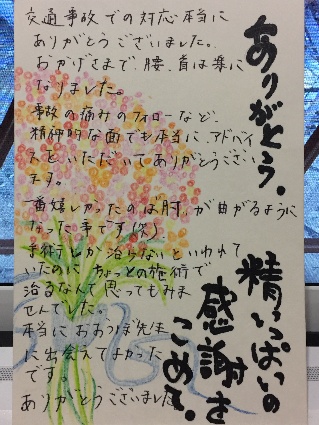 交通事故での対応本当に
ありがとうございました。
おかげさまで、腰、首は楽に
なりました。
事故の痛みのフォローなど、
精神的な面でも本当に、アドバイ
スを、いただいてありがとうござい
ます。
一番嬉しかったのは肘、が曲がるように
なった事です(笑)
手術しか治らないといわれて
いたのに ちょっとの施術で
治るなんて思ってもみま
せんでした。
本当におおつぼ先生
に出会えてよかった
です。
ありがとうございました
ありがとう。
精いっぱいの
感謝を
こめて。